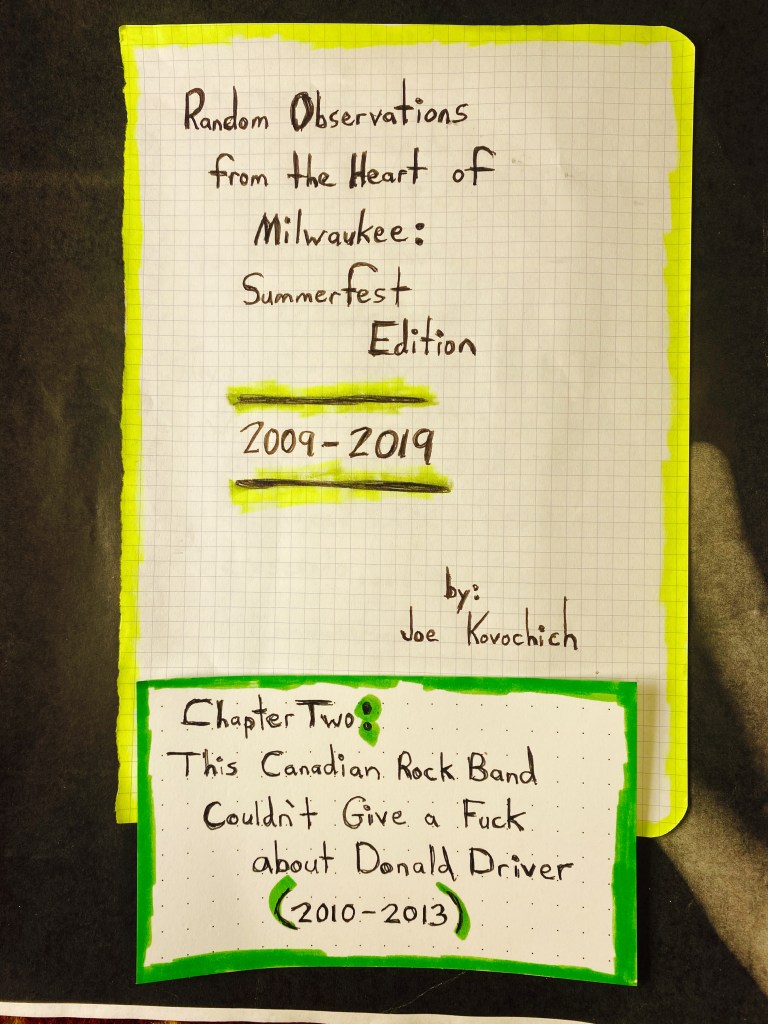 Random Observations
from the Heart of
Milwaukee:
Summerfest
Edition
2009-2019
by:
Joe Kovochich
Chapter Two:
This Canadian Rock Band
Couldn't Give a Fuck
about Donald Driver
(2010-2013)